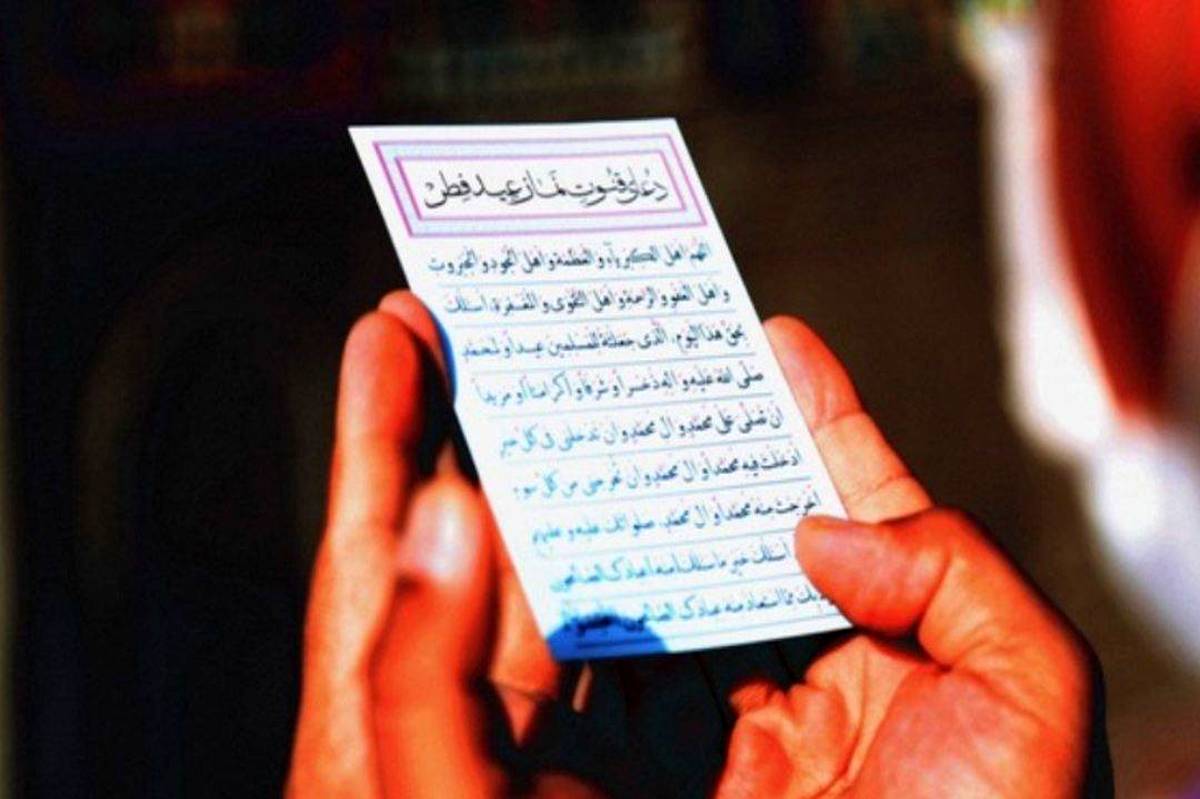 دعای قنوت نماز عید فطر
اللهم اهل الکبریآء و العظمة و اهل الجود و الجبروت
و اهل العفو و الرحمة و اهل التقوی و المغفرة، اسئلک
بحق هذا الیوم، الذی جعلته للمسلمین عیداً و لمحمد
صلی الله علیه و اله ذخراً و شرفاً و کرامتاً و مزیداً
ان تصلی علی محمد و ال محمد و ان تدخلنی فی کل خیر
ادخلت فیه محمداً و ال محمد و ان تخرجنی من کل سوء
اخرجت منه محمداً و ال محمد، صلواتک علیه و علیهم
اسئلک خیر ما سئلک منه عبادک الصالحون
بک مما استعاذ منه عبادک